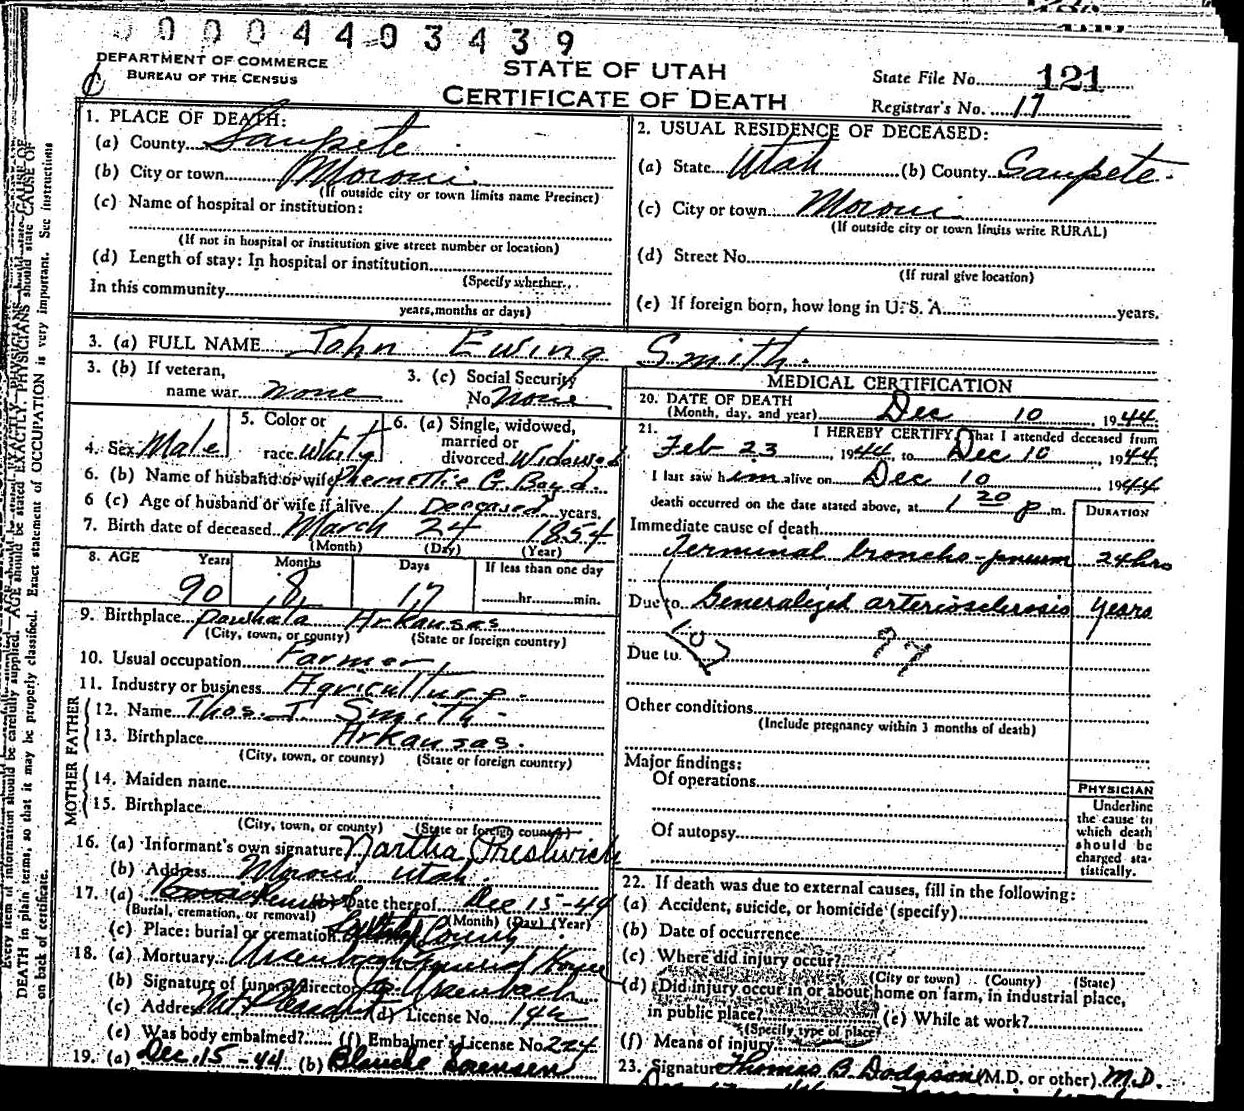 00004403439
DEPARTMENT OF COMMERCE
BUREAU OF THE CENSUS
STATE OF UTAH
CERTIFICATE OF DEATH
State File No. 121
Registrar's No. 17
1. PLACE OF DEATH:
(a) County Sanpete
(b) City or town Moroni
(If outside city or town limits name Precinct)
(c) Name of hospital or institution:
(If not in hospital or institution give street number or location)
(d) Length of stay: In hospital or institution
(Specify whether
In this community
years, months or days)
2. USUAL RESIDENCE OF DECEASED:
(a) State Utah (b) County Sanpete
(c) City or town Moroni
(If outside city or town limits write RURAL)
(d) Street No.
(If rural give location)
(e) If foreign born, how long in U. S. A. years.
3. (a) FULL NAME John Ewing Smith
3. (b) If veteran, name war none
3. (c) Social Security No. None
4. Sex Male
5. Color or race White
6. (a) Single, widowed, married or divorced Widowed
6. (b) Name of husband or wife G. Boyd
6 (c) Age of husband or wife if alive Deceased years.
7. Birth date of deceased March 24 1854
(Month) (Day) (Year)
8. AGE Years Months Days If less than one day
90 8 17 hr. min.
9. Birthplace Arkansas
(City, town, or county) (State or foreign country)
10. Usual occupation Farmer
11. Industry or business Agriculture
FATHER
12. Name Thos. J. Smith
13. Birthplace Arkansas
(City, town, or county) (State or foreign country)
MOTHER
14. Maiden name
15. Birthplace
(City, town, or county) (State or foreign country)
16. (a) Informant's own signature Martha Prestwich
(b) Address Moroni Utah
17. (a) Date thereof Dec 15-44
(Burial, cremation, or removal) (Month) (Day) (Year)
(c) Place: burial or cremation County
18. (a) Mortuary Ursenbach Funeral Home
(b) Signature of funeral director Ursenbach
(c) Address Mt Pleasant (d) License No. 144
(e) Was body embalmed? (f) Embalmer's License No. 224
19. (a) Dec. 15-44 (b) Blanche Sorensen
MEDICAL CERTIFICATION
20. DATE OF DEATH
(Month, day, and year) Dec 10 1944
21. I HEREBY CERTIFY, That I attended deceased from
Feb 23, 1944, to Dec 10 1944
I last saw him alive on Dec 10 1944
death occurred on the date stated above, at 1 20 p.m.
DURATION
Immediate cause of death
Terminal broncho-pneum 24 hrs
Due to Generalized arteriosclerosis years
Due to 107 97
Other conditions
(Include pregnancy within 3 months of death)
Major findings:
Of operations
Of autopsy
PHYSICIAN
Underline the cause to which death should be charged statistically.
22. If death was due to external causes, fill in the following:
(a) Accident, suicide, or homicide (specify)
(b) Date of occurrence
(c) Where did injury occur?
(City or town) (County) (State)
(d) Did injury occur in or about home on farm, in industrial place,
in public place? (e) While at work?
(Specify type of place)
(f) Means of injury
23. Signature Thomas B. Dodgson (M.D. or other) M.D.
on back of certificate.